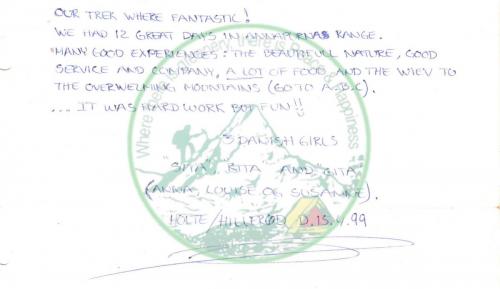 OUR TREK WHERE FANTASTIC!
WE HAD 12 GREAT DAYS IN ANNAPURNAS RANGE.
MANY GOOD EXPERIENCES: THE BEAUTIFULL NATURE, GOOD
SERVICE AND COMPANY, A LOT OF FOOD AND THE WIEV TO
THE OVERWELMING MOUNTAINS (GO TO A.B.C).
... IT WAS HARD WORK BUT FUN!!
3 DANISH GIRLS
"SITA", "BITA" AND "GITA"
(ANNA, LOUISE OG SUSANNE).
HOLTE/HILLERØD D. 15. .99
Where there is Greenery, There is Peace & Happiness